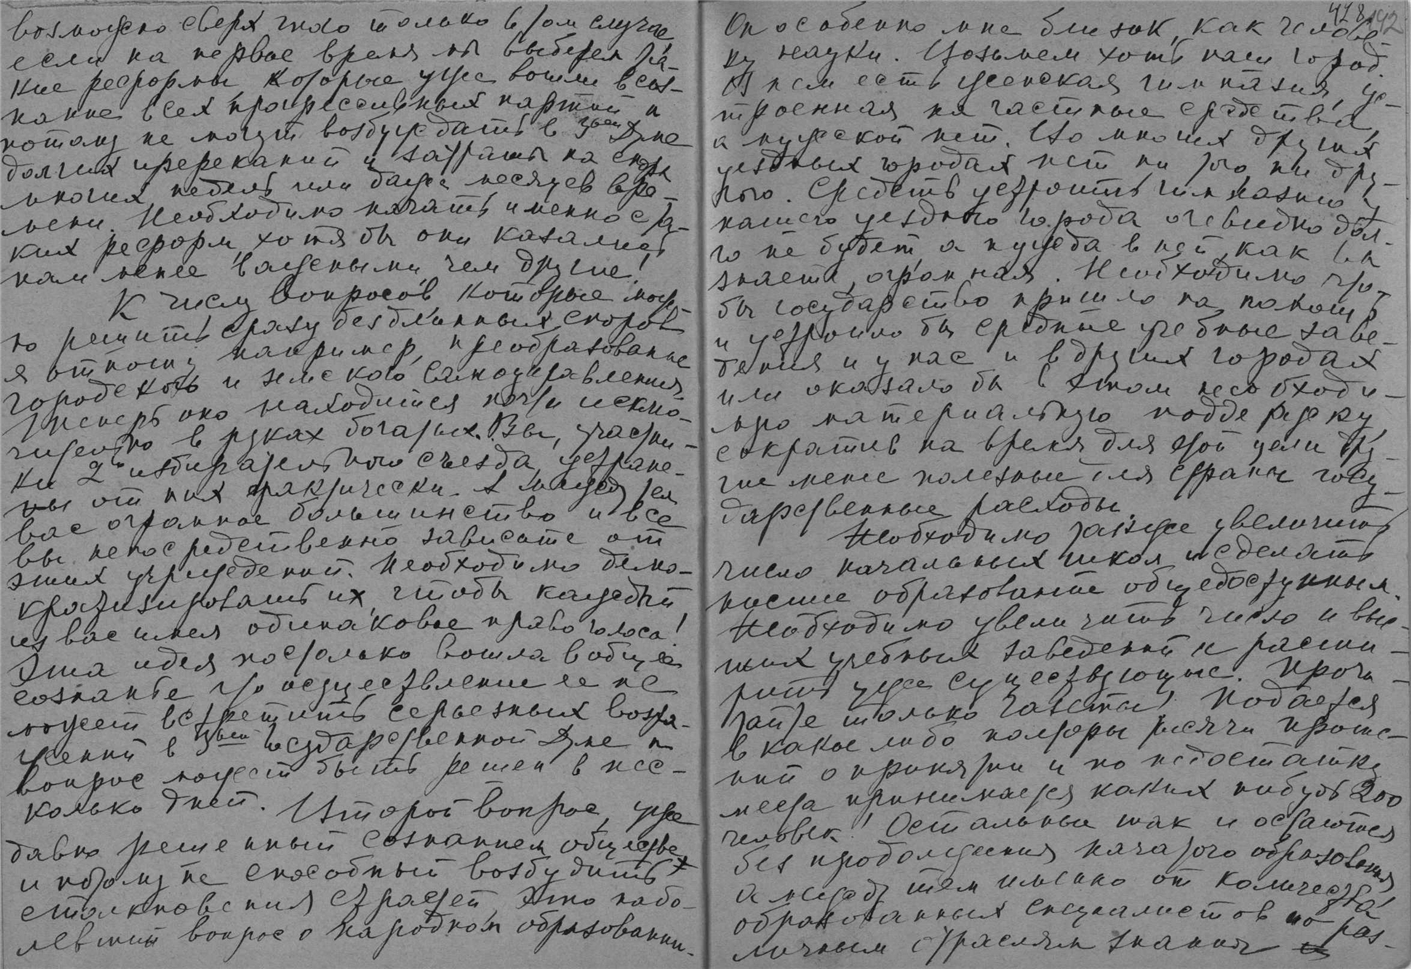 возможно сверх того только в том случае,
если на первое время мы выберем та-
кие реформы, которые уже вошли в соз-
нание всех прогрессивных партий и
потому не могут возбуждать в 3ьей Думе
долгих пререканий и затраты на споры
многих недель или даже месяцев вре-
мени. Необходимо начать именно с та-
ких реформ, хотя бы они казались
нам менее важными, чем другие!
К числу вопросов, которые мож-
но решить сразу без длинных споров
я отношу, например, преобразование
городского и земского самоуправления
Теперь оно находится почти исклю-
чительно в руках богатых. Вы, участни-
ки 2го избирательного съезда, устране-
ны от них фактически. А между тем
вас огромное большинство и все
вы непосредственно зависите от
этих учреждений. Необходимо демо-
кратизировать их, чтобы каждый
из вас имел одинаковое право голоса!
Эта идея настолько вошла в общее
сознание что осуществление ее не
может встретить серьезных возра-
жений в 3ьей Государственной Думе и
вопрос может быть решен в нес-
колько дней. Второй вопрос, уже
давно решенный сознанием общества
и потому не способный возбудить
столкновения страстей это набо-
левший вопрос о народном образовании.
428 192
Он особенно мне близок, как челове-
ку науки. Возьмем хоть наш город.
В нем есть женская гимназия, ус-
троенная на частные средства,
а мужской нет. Во многих других
уездных городах нет ни того ни дру-
гого. Средств устроить гимназию у
нашего уездного города очевидно дол-
го не будет, а нужда в ней, как вы
знаете, огромная. Необходимо что-
бы государство пришло на помощь
и устроило бы средние учебные заве-
дения и у нас и в других городах
или оказало бы в этом необходи-
мую материальную поддержку,
сократив на время для этой цели дру-
гие менее полезные для страны госу-
дарственные расходы.
Необходимо также увеличить
число начальных школ и сделать
низшее образование общедоступным.
Необходимо увеличить число и выс-
ших учебных заведений и расши-
рить уже существующие. Прочи-
тайте только газеты! Подается
в какое либо контору тысячи проше-
ний о принятии и по недостатку
места принимается каких нибудь 200
человек! Остальные так и остаются
без продолжения начатого образования
А между тем именно от количества
образованных специалистов по раз-
личным отраслям знания